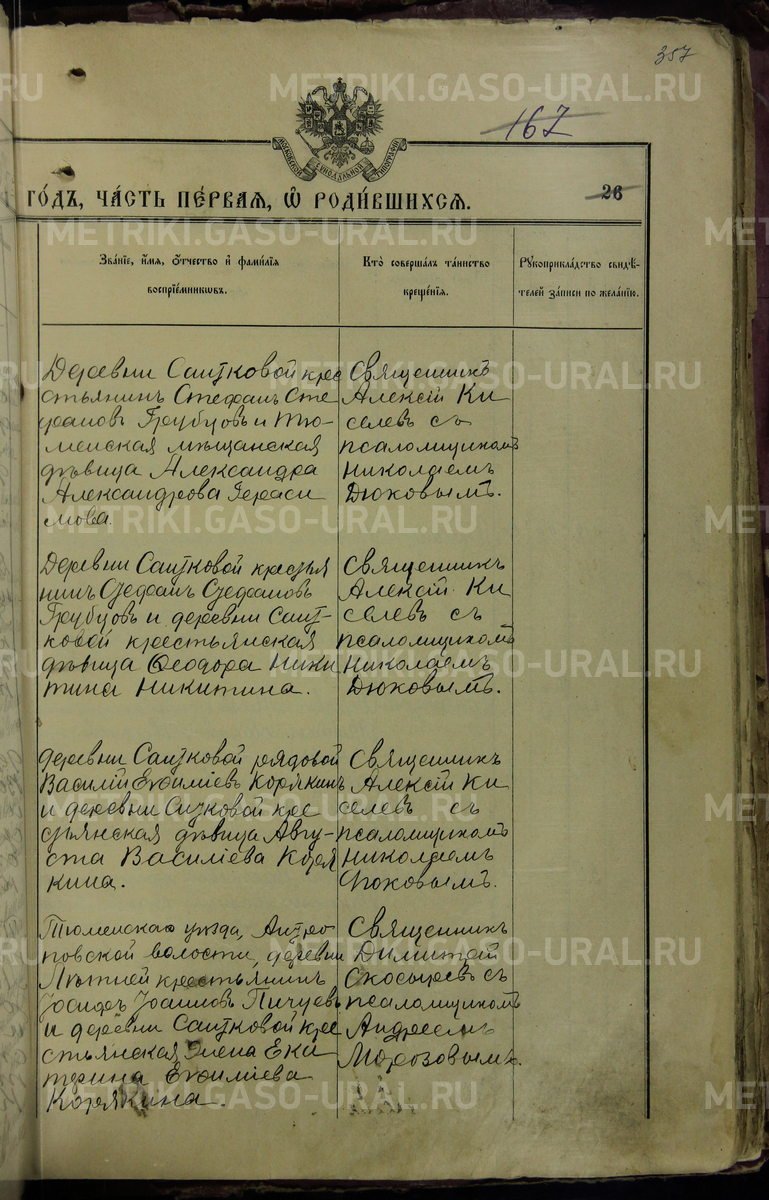 357
167
МОСКОВСКОЙ СѴНОДАЛЬНОЙ ТИПОГРАФІИ
ГО́ДЪ, ЧА́СТЬ ПЕ́РВАѦ, Ѽ РОДИ́ВШИХСѦ.
26
Зва́нїе, и҆́мѧ, ѻ҆́тчество и҆ фами́лїѧ
воспрїе́мникѡвъ.
Кто̀ соверша́лъ та́инство
креще́нїѧ.
Рꙋкоприкла́дство свидѣ́-
телей за́писи по жела́нїю.
Деревни Саитковой крес
стьянинъ Стефанъ Сте
фановъ Грубцовъ и Тю-
менская мѣщанская
дѣвица Александра
Александрова Гераси
мова
Священникъ
Алексій Ки
селевъ съ
псаломщикомъ
Николаемъ
Дюковымъ.
Деревни Саитковой крестья
нинъ Стефанъ Стефановъ
Грубцовъ и деревни Саит-
ковой крестьянская
дѣвица Ѳеодора Ники
тина Никитина.
Священникъ
Алексій Ки
селевъ съ
псаломщикомъ
Николаемъ
Дюковымъ.
деревни Саитковой рядовой
Василій Евфиміевъ Корякинъ
и деревни Ситковой кре
стьянская дѣвица Авгу-
ста Василіева Коря
кина.
Священникъ
Алексій Ки
селевъ съ
псаломщикомъ
Николаемъ
Дюковымъ.
Тюменскаго уѣзда, Антро-
повской волости, деревни
Лѣтней крестьянинъ
Іосифъ Іоанновъ Пичуевъ
и деревни Саитковой кре
стьянская жена Ека
терина Евфиміева
Корякина.
Священникъ
Димитрій
Скосыревъ съ
псаломщикомъ
Андреемъ
Морозовымъ.
METRIKI.GASO-URAL.RU